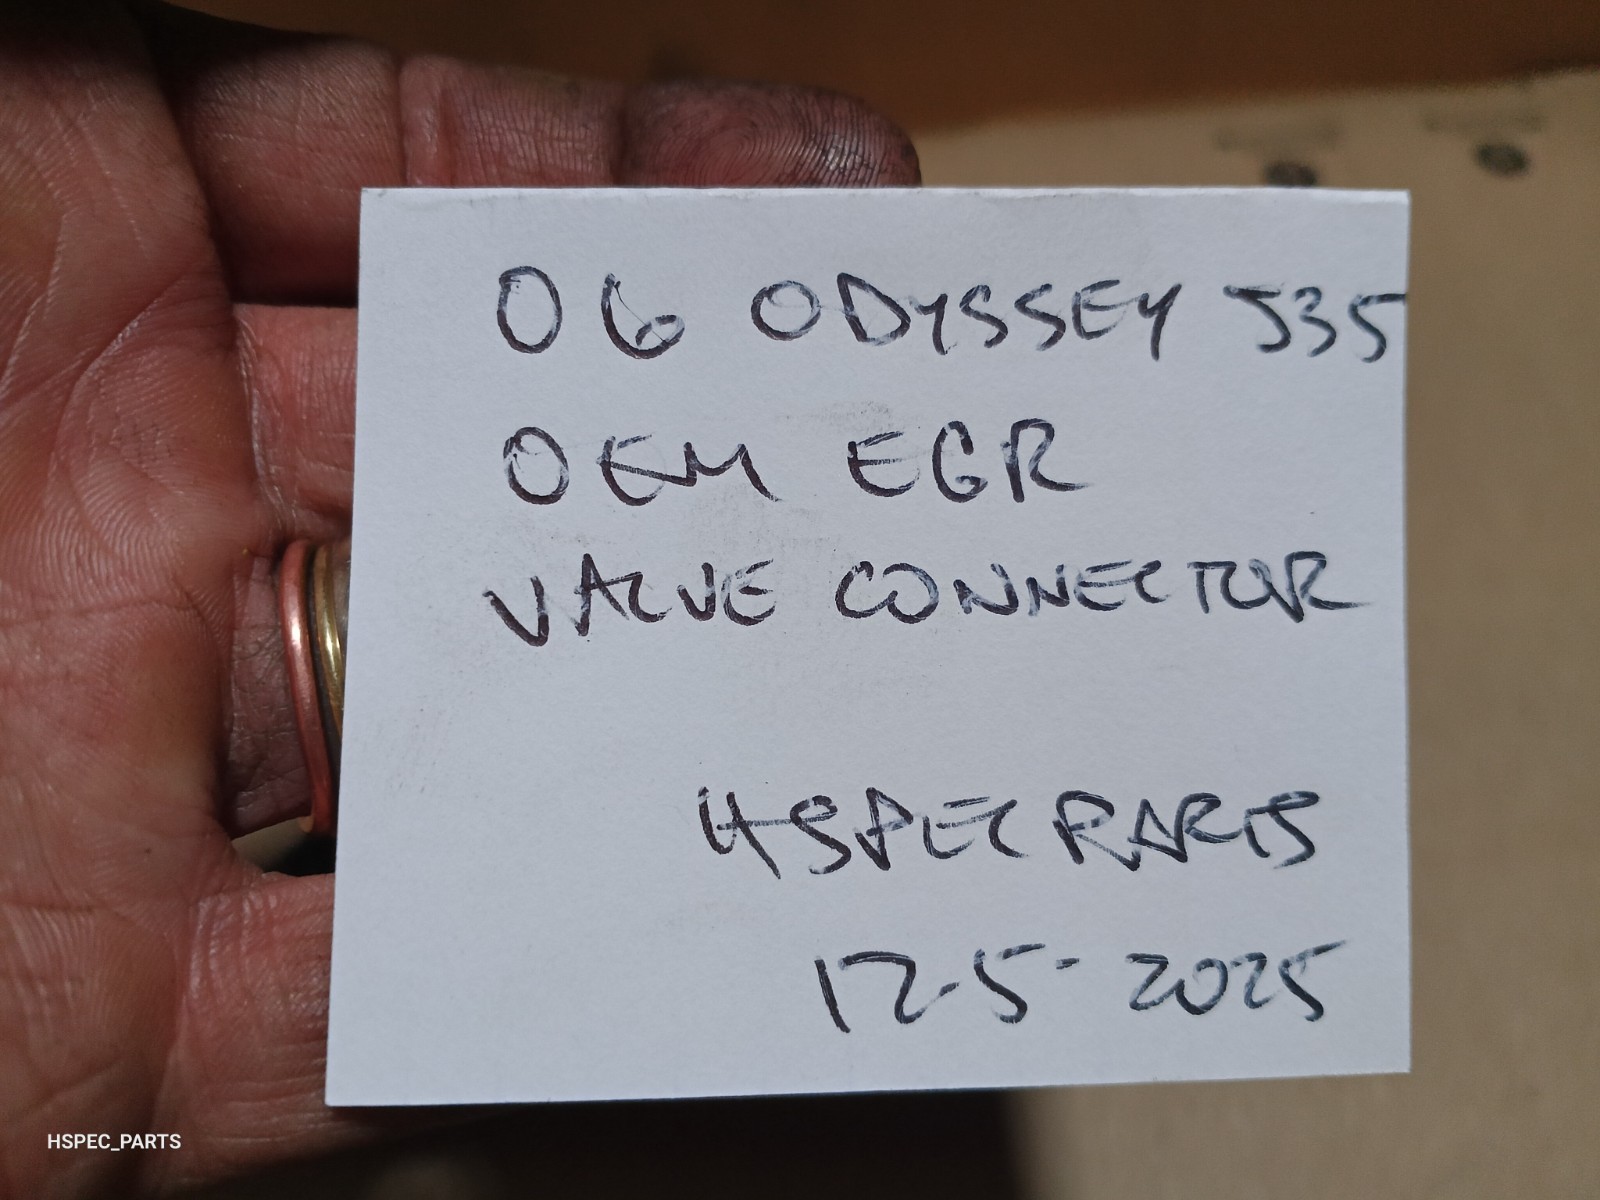 06 ODYSSEY J35
OEM EGR
VALVE CONNECTOR
HSPEC PARTS
12-5-2025
HSPEC_PARTS